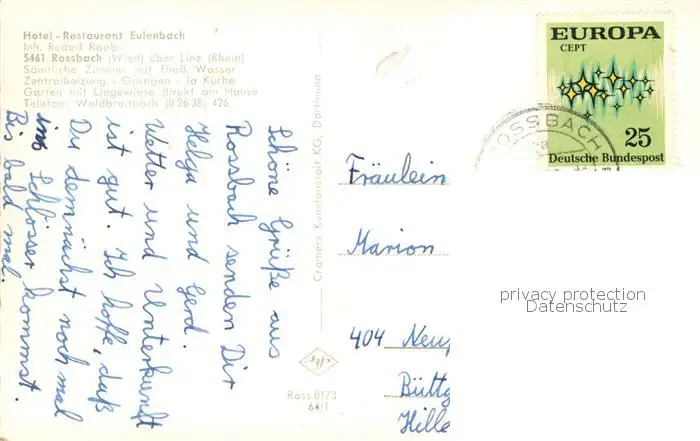 Hotel - Restaurant Eulenbach
Inh. Rudolf Raab
5461 Rossbach (Wied) über Linz (Rhein)
Sämtliche Zimmer mit fließ. Wasser
Zentralheizung - Garagen - la Küche
Garten mit Liegewiese direkt am Hause
Telefon: Waldbreitbach (0 26 38) 426
Schöne Grüße aus
Rossbach senden Dir
Helga und Gerd.
Wetter und Unterkunft
ist gut. Ich hoffe, daß
Du demnächst noch mal
ins Schlösser kommst.
Bis bald mal.
Cramers Kunstanstalt KG, Dortmund
Ross 0173
64/1
EUROPA
CEPT
25
Deutsche Bundespost
ROSSBACH
Fräulein
Marion
404 Neuß
Büttg
Hille
privacy protection
Datenschutz